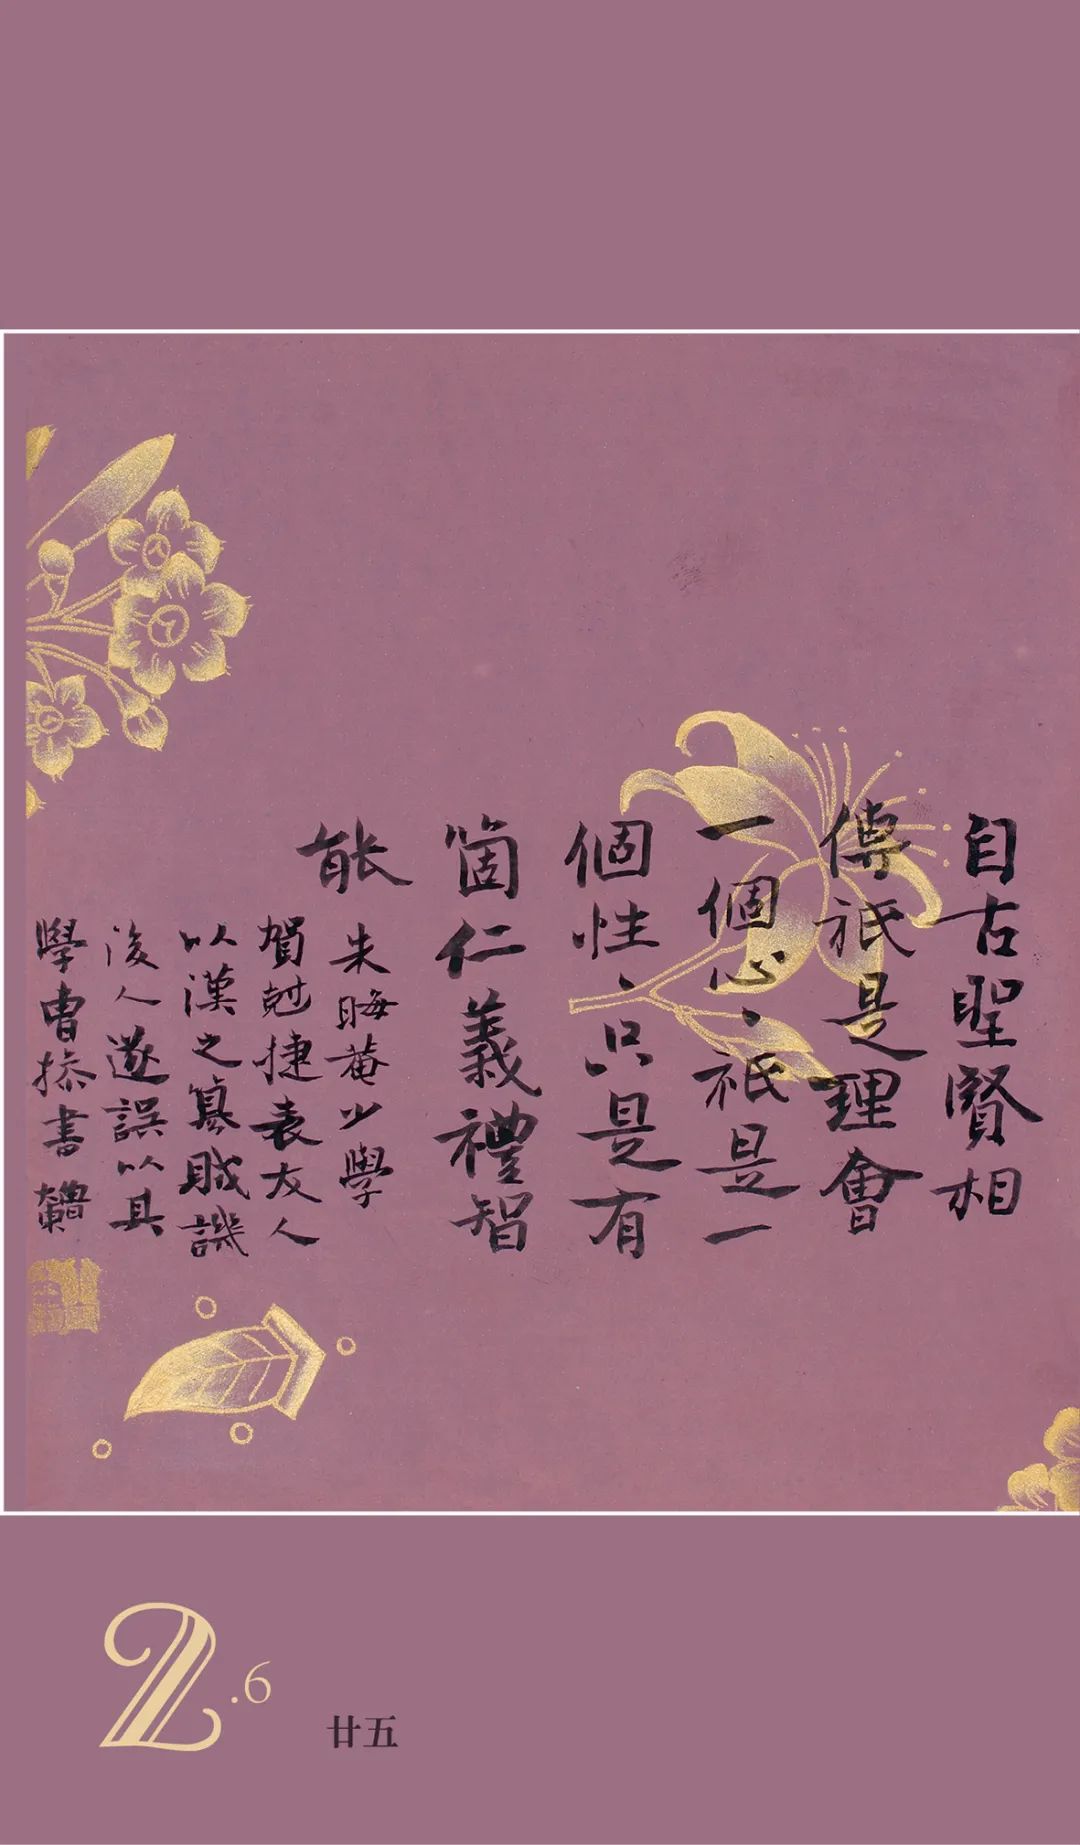 自古聖賢相
傳祇是理會
一個心、祇是一
個性、只是有
箇仁義禮智
能 朱晦菴少學
賀尅捷表友人
以漢之篡賊譏
後人遂誤以其
學曹操書
2.6
廿五